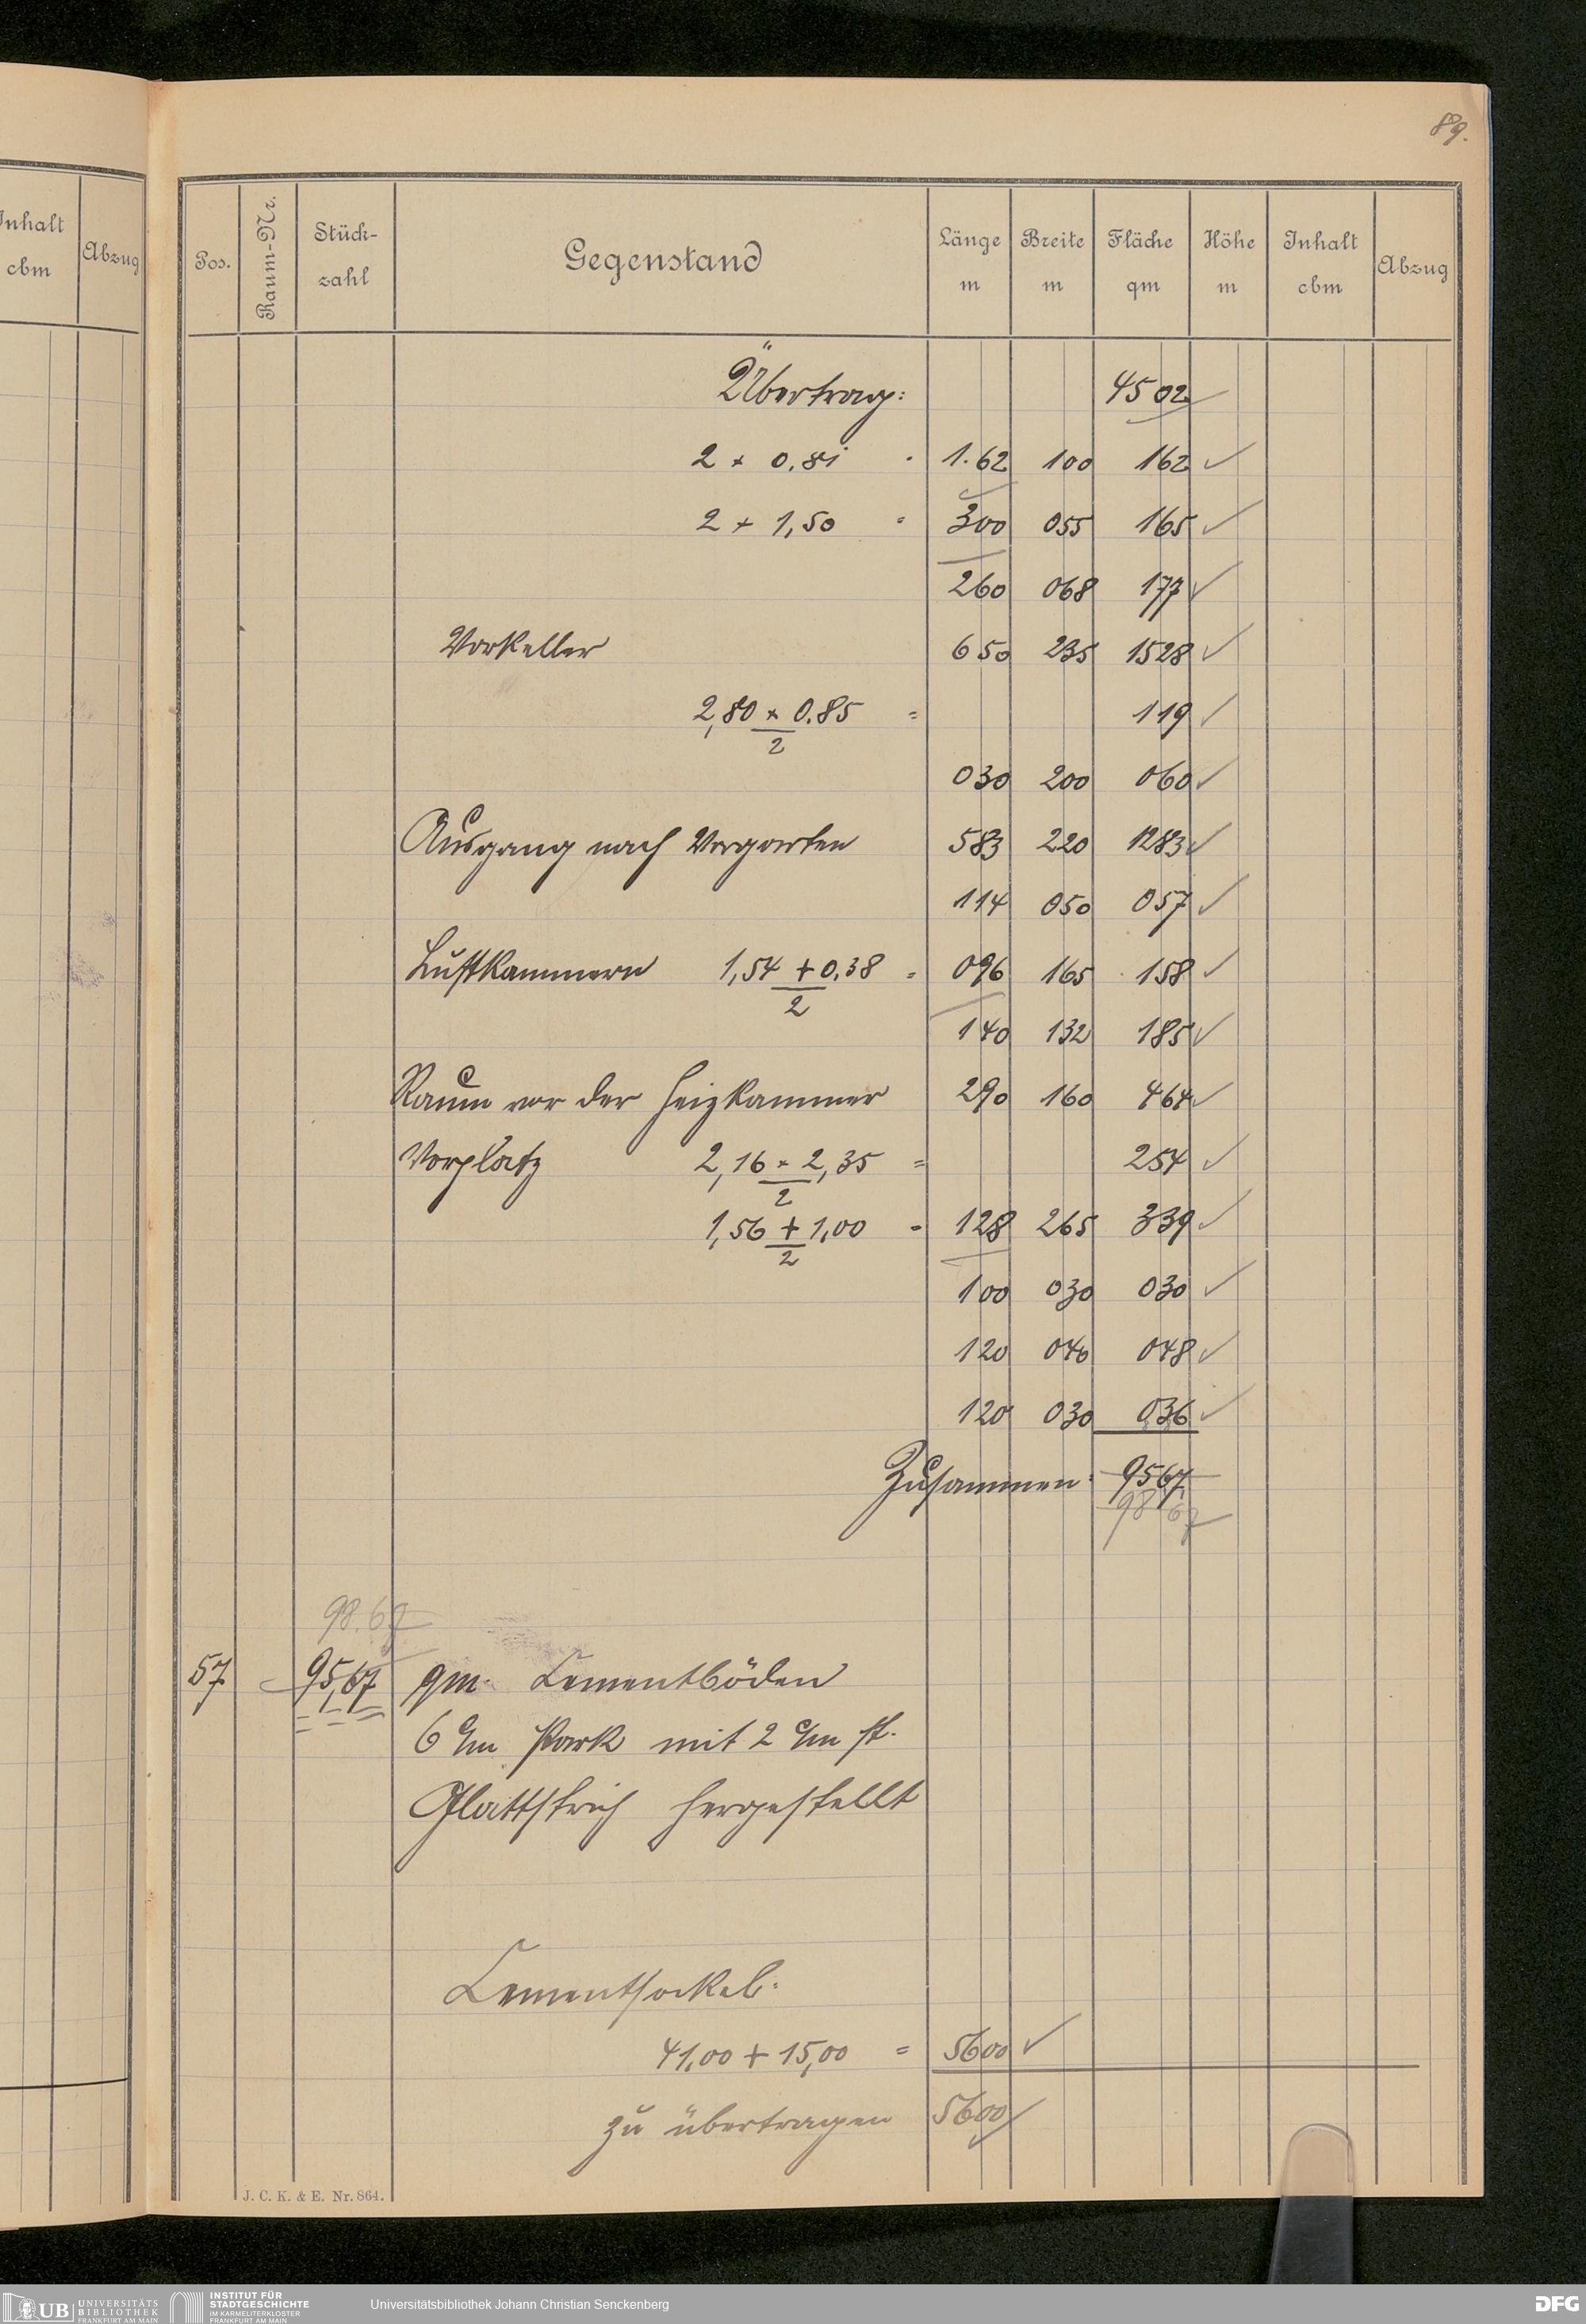 89.
Inhalt cbm Abzug
Pos. Raum-Nr. Stück-zahl Gegenstand Länge m Breite m Fläche qm Höhe m Inhalt cbm Abzug
Übertrag: 45 02
2 × 0.81 = 1.62 1 00 1 62 ✓
2 × 1,50 = 3 00 0 55 1 65 ✓
2 60 0 68 1 77 ✓
Vorkeller 6 50 2 35 15 28 ✓
2,80 × 0.85 / 2 = 1 19 ✓
0 30 2 00 0 60 ✓
Ausgang nach Vorgarten 5 83 2 20 12 83 ✓
1 14 0 50 0 57 ✓
Luftkammern 1,54 + 0,38 / 2 = 0 96 1 65 1 58 ✓
1 40 1 32 1 85 ✓
Raum vor der Heizkammer 2 90 1 60 4 64 ✓
Vorplatz 2,16 × 2,35 / 2 = 2 54 ✓
1,56 + 1,00 / 2 = 1 28 2 65 3 39 ✓
1 00 0 30 0 30 ✓
1 20 0 40 0 48 ✓
1 20 0 30 0 36 ✓
Zusammen: 95 67
98 67
98.67
57 95,67 qm Cementböden
6 c/m stark mit 2 c/m st.
Glattstrich hergestellt
Cementsockel:
41,00 + 15,00 = 56 00 ✓
zu übertragen 56 00
J. C. K. & E. Nr. 864.
UB UNIVERSITÄTS BIBLIOTHEK FRANKFURT AM MAIN
INSTITUT FÜR STADTGESCHICHTE IM KARMELITERKLOSTER FRANKFURT AM MAIN
Universitätsbibliothek Johann Christian Senckenberg
DFG